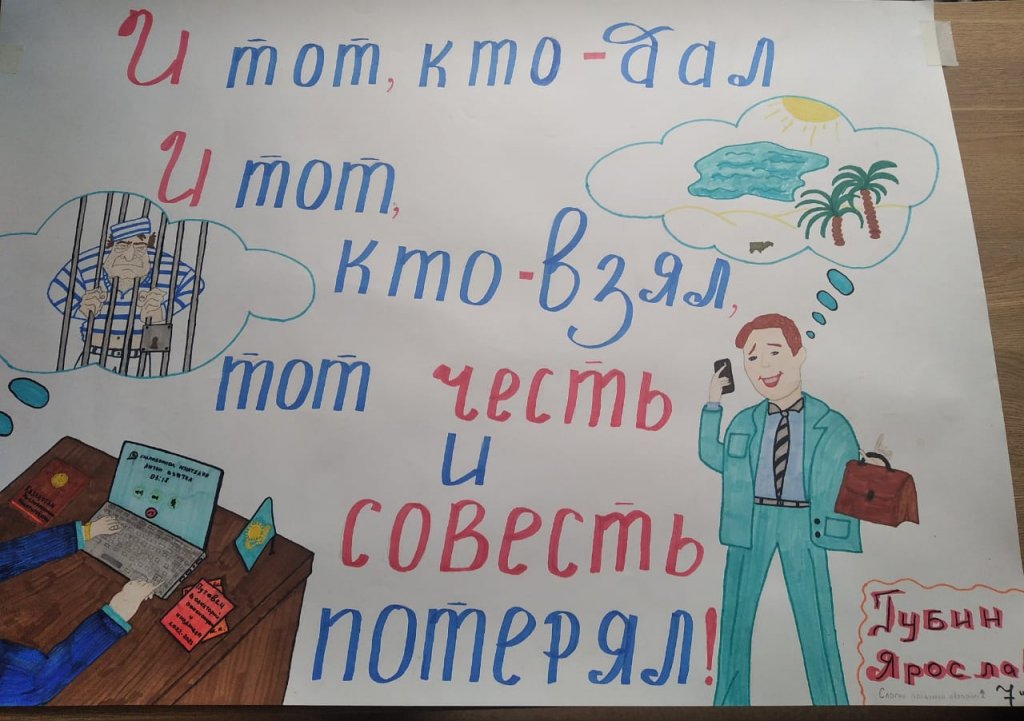 И тот, кто-дал
И тот,
кто-взял,
тот честь
и
совесть
потерял!
Губин
Яросла
7"
05:12